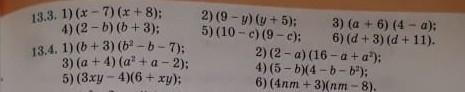 13.3. 1) (x − 7)(x + 8); 2) (9 − y)(y + 5); 3) (a + 6)(4 − a);
4) (2 − b)(b + 3); 5) (10 − c)(9 − c); 6) (d + 3)(d + 11).
13.4. 1) (b + 3)(b² − b − 7); 2) (2 − a)(16 − a + a²);
3) (a + 4)(a² + a − 2); 4) (5 − b)(4 − b − b²);
5) (3xy − 4)(6 + xy); 6) (4nm + 3)(nm − 8).